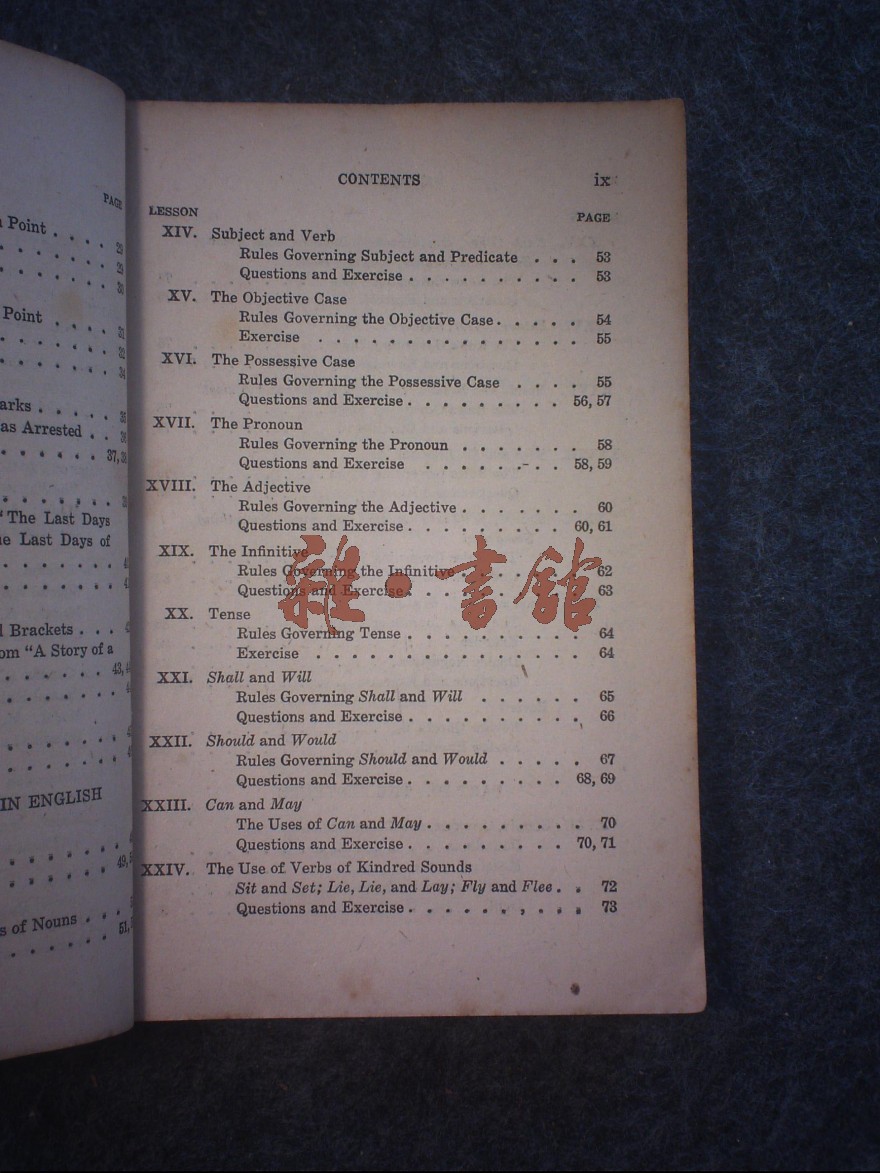 PAGE
Point . . . .
29
29
30
Point . . . .
31
32
34
arks . . . . . 35
as Arrested . . 36
37, 38
"The Last Days
he Last Days of
Brackets . . .
om "A Story of a
43,
IN ENGLISH
49,
s of Nouns . . .
51,
CONTENTS ix
LESSON PAGE
XIV. Subject and Verb
Rules Governing Subject and Predicate . . . 53
Questions and Exercise . . . . . . . . . . 53
XV. The Objective Case
Rules Governing the Objective Case . . . . . 54
Exercise . . . . . . . . . . . . . . 55
XVI. The Possessive Case
Rules Governing the Possessive Case . . . . 55
Questions and Exercise . . . . . . . . . 56, 57
XVII. The Pronoun
Rules Governing the Pronoun . . . . . . . 58
Questions and Exercise . . . . . . . 58, 59
XVIII. The Adjective
Rules Governing the Adjective . . . . . . . 60
Questions and Exercise . . . . . . . . . 60, 61
XIX. The Infinitive
Rules Governing the Infinitive . . . . . . . 62
Questions and Exercise . . . . . . . . . . 63
雜·書館
XX. Tense
Rules Governing Tense . . . . . . . . . . 64
Exercise . . . . . . . . . . . . . . 64
XXI. Shall and Will
Rules Governing Shall and Will . . . . . . 65
Questions and Exercise . . . . . . . . . . 66
XXII. Should and Would
Rules Governing Should and Would . . . . . 67
Questions and Exercise . . . . . . . . . 68, 69
XXIII. Can and May
The Uses of Can and May . . . . . . . . . 70
Questions and Exercise . . . . . . . . . 70, 71
XXIV. The Use of Verbs of Kindred Sounds
Sit and Set; Lie, Lie, and Lay; Fly and Flee . . 72
Questions and Exercise . . . . . . . . . . 73